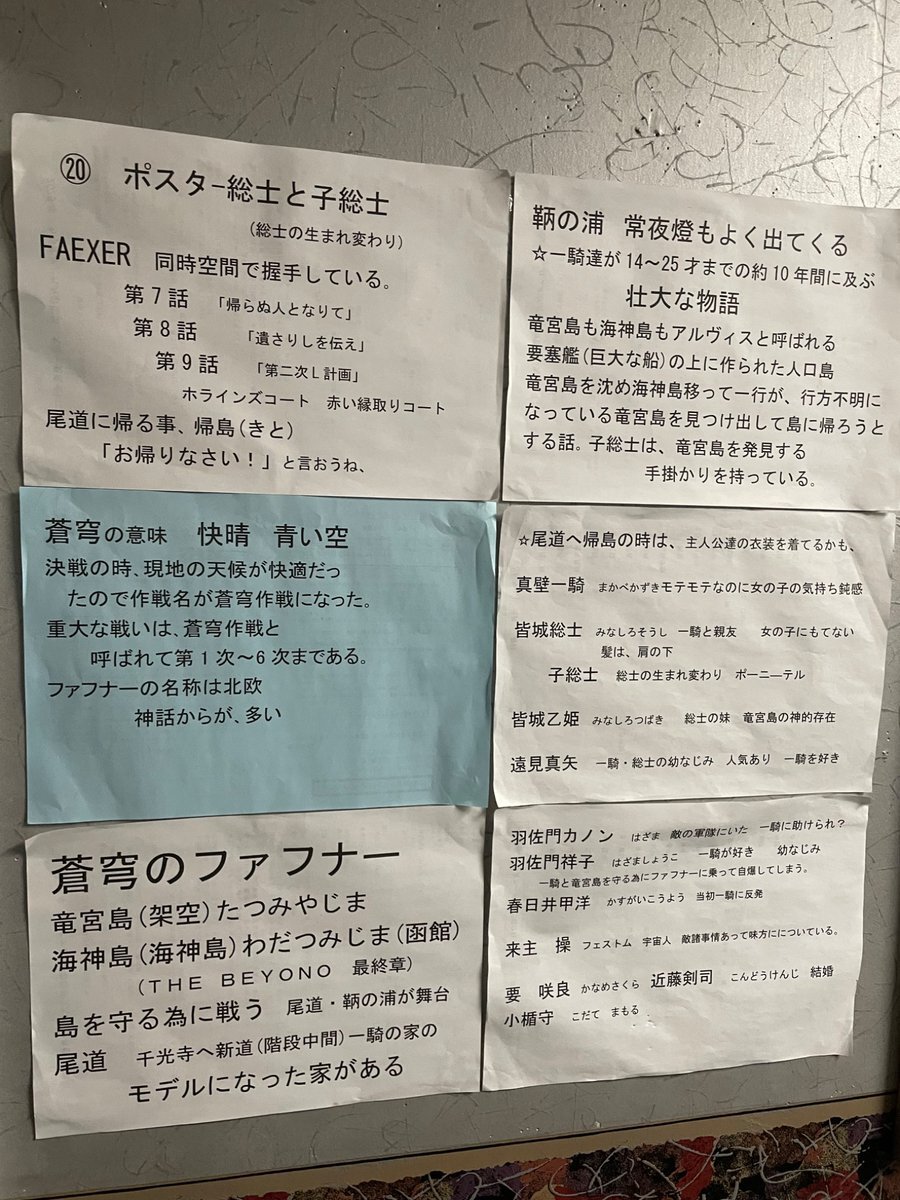 ⑳ ポスター総士と子総士
(総士の生まれ変わり)
FAEXER 同時空間で握手している。
第7話 「帰らぬ人となりて」
第8話 「遺さりしを伝え」
第9話 「第二次L計画」
ホラインズコート 赤い縁取りコート
尾道に帰る事、帰島(きと)
「お帰りなさい!」と言おうね、
鞆の浦 常夜燈もよく出てくる
☆一騎達が14~25才までの約10年間に及ぶ
壮大な物語
竜宮島も海神島もアルヴィスと呼ばれる
要塞艦(巨大な船)の上に作られた人口島
竜宮島を沈め海神島移って一行が、行方不明に
なっている竜宮島を見つけ出して島に帰ろうと
する話。子総士は、竜宮島を発見する
手掛かりを持っている。
蒼穹の意味 快晴 青い空
決戦の時、現地の天候が快適だっ
たので作戦名が蒼穹作戦になった。
重大な戦いは、蒼穹作戦と
呼ばれて第1次~6次まである。
ファフナーの名称は北欧
神話からが、多い
☆尾道へ帰島の時は、主人公達の衣装を着てるかも、
真壁一騎 まかべかずきモテモテなのに女の子の気持ち鈍感
皆城総士 みなしろそうし 一騎と親友 女の子にもてない
髪は、肩の下
子総士 総士の生まれ変わり ポーニーテル
皆城乙姫 みなしろつばき 総士の妹 竜宮島の神的存在
遠見真矢 一騎・総士の幼なじみ 人気あり 一騎を好き
蒼穹のファフナー
竜宮島(架空)たつみやじま
海神島(海神島)わだつみじま(函館)
(THE BEYONO 最終章)
島を守る為に戦う 尾道・鞆の浦が舞台
尾道 千光寺へ新道(階段中間)一騎の家の
モデルになった家がある
羽佐門カノン はざま 敵の軍隊にいた 一騎に助けられ?
羽佐門祥子 はざましょうこ 一騎が好き 幼なじみ
一騎と竜宮島を守る為にファフナーに乗って自爆してしまう。
春日井甲洋 かすがいこうよう 当初一騎に反発
来主 操 フェストム 宇宙人 敵諸事情あって味方にについている。
要 咲良 かなめさくら 近藤剣司 こんどうけんじ 結婚
小楯守 こだて まもる